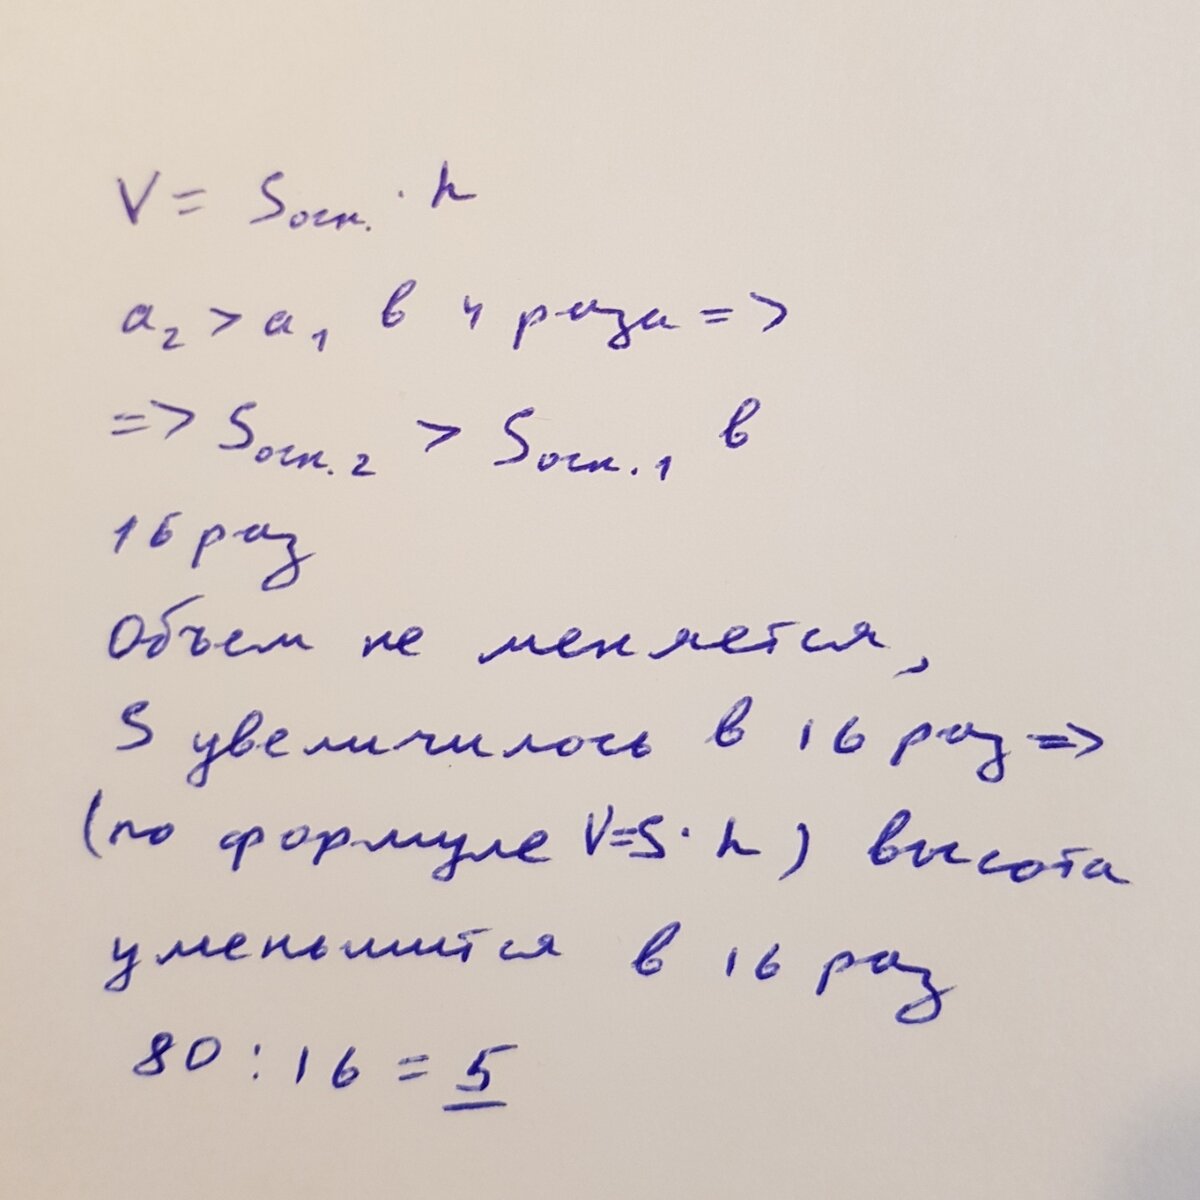 V = Sосн. · h
a₂ > a₁ в 4 раза =>
=> Sосн.2 > Sосн.1 в
16 раз
Объем не меняется,
S увеличилось в 16 раз =>
(по формуле V=S·h) высота
уменьшится в 16 раз
80 : 16 = 5